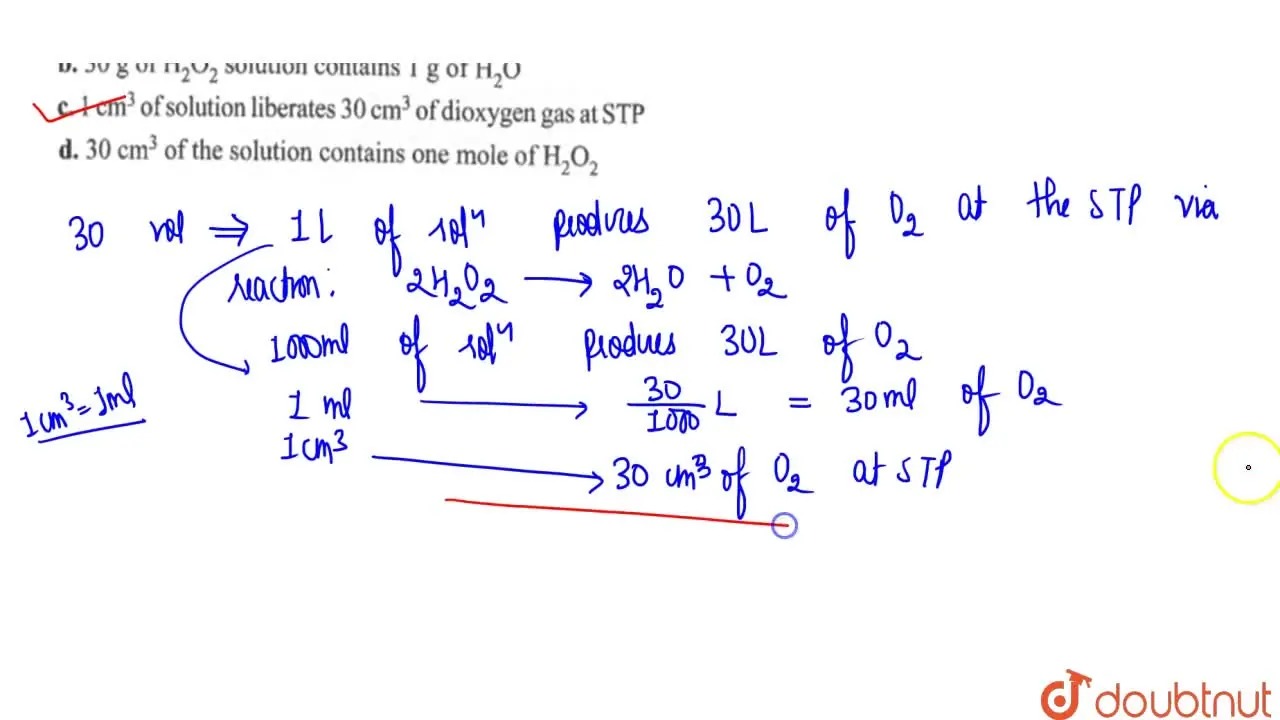 b. 30 g of H₂O₂ solution contains 1 g of H₂O
c. 1 cm³ of solution liberates 30 cm³ of dioxygen gas at STP
d. 30 cm³ of the solution contains one mole of H₂O₂
30 vol ⇒ 1L of solⁿ produces 30L of O₂ at the STP via
reaction: 2H₂O₂ → 2H₂O + O₂
1000ml of solⁿ produes 30L of O₂
1cm³=1ml
1 ml → 30/1000 L = 30ml of O₂
1cm³ → 30 cm³ of O₂ at STP
doubtnut